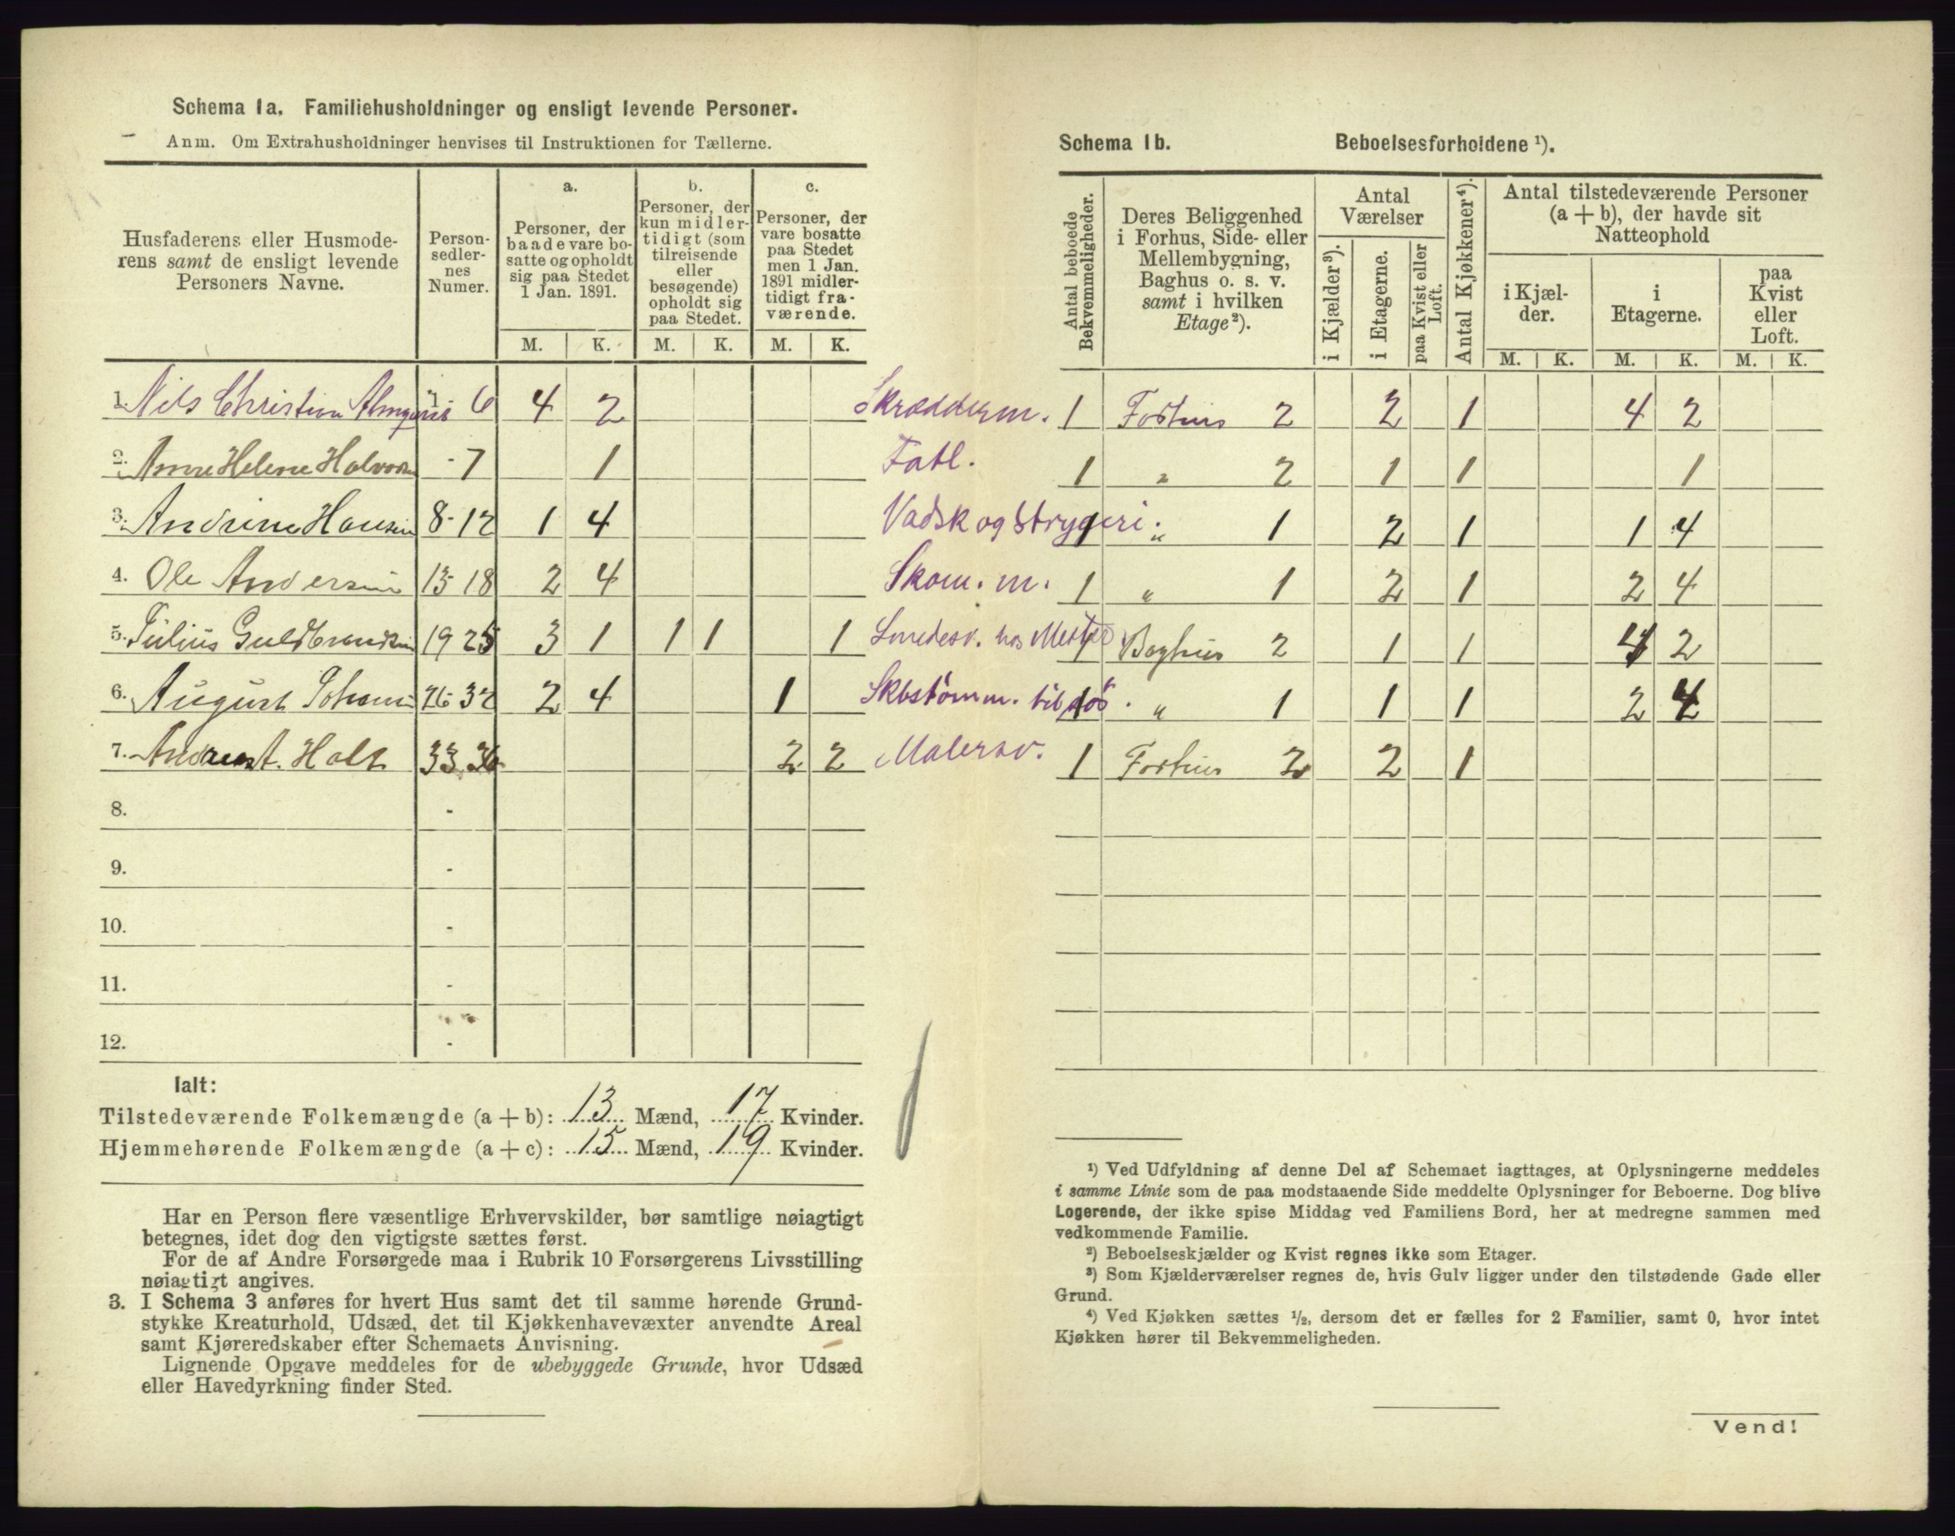 Schema 1a. Familiehusholdninger og ensligt levende Personer.
Anm. Om Extrahusholdninger henvises til Instruktionen for Tællerne.
Husfaderens eller Husmoderens samt de ensligt levende Personers Navne.
Personsedlernes Numer.
a. Personer, der baade vare bosatte og opholdt sig paa Stedet 1 Jan. 1891.
b. Personer, der kun midlertidigt (som tilreisende eller besøgende) opholdt sig paa Stedet.
c. Personer, der vare bosatte paa Stedet men 1 Jan. 1891 midlertidigt fraværende.
M. K. M. K. M. K.
1. Nils Christian 1-6 4 2 Skrædderm.
2. Anne Helene Halvorsen -7 1 Fatl.
3. Andrine Hansen 8-12 1 4 Vadsk og Strygeri.
4. Ole Andersen 13-18 2 4 Skom. m.
5. Julius Guldbrandsen 19 25 3 1 1 1 1 Smedesv. hos Mester
6. August Johansen 26-32 2 4 1 Skbstømm. til søs.
7. Andreas A. Holt 33 36 2 2 Malersv.
8. -
9. -
10. -
11. -
12. -
Ialt:
Tilstedeværende Folkemængde (a + b): 13 Mænd, 17 Kvinder.
Hjemmehørende Folkemængde (a + c): 15 Mænd, 19 Kvinder.
Har en Person flere væsentlige Erhvervskilder, bør samtlige nøiagtigt
betegnes, idet dog den vigtigste sættes først.
For de af Andre Forsørgede maa i Rubrik 10 Forsørgerens Livsstilling
nøiagtigt angives.
3. I Schema 3 anføres for hvert Hus samt det til samme hørende Grund-
stykke Kreaturhold, Udsæd, det til Kjøkkenhavevæxter anvendte Areal
samt Kjøreredskaber efter Schemaets Anvisning.
Lignende Opgave meddeles for de ubebyggede Grunde, hvor Udsæd
eller Havedyrkning finder Sted.
Schema 1b. Beboelsesforholdene ¹).
Antal beboede Bekvemmeligheder.
Deres Beliggenhed i Forhus, Side- eller Mellembygning, Baghus o. s. v. samt i hvilken Etage ²).
Antal Værelser
i Kjælder ³).
i Etagerne.
paa Kvist eller Loft.
Antal Kjøkkener ⁴).
Antal tilstedeværende Personer (a + b), der havde sit Natteophold
i Kjælder.
i Etagerne.
paa Kvist eller Loft.
M. K. M. K. M. K.
1 Forhus 2 2 1 4 2
1 " 2 1 1 1
1 " 1 2 1 1 4
1 " 1 2 1 2 4
1 Baghus 2 1 1 4 2
1 " 1 1 1 2 4
1 Forhus 2 2 1
¹) Ved Udfyldning af denne Del af Schemaet iagttages, at Oplysningerne meddeles
i samme Linie som de paa modstaaende Side meddelte Oplysninger for Beboerne. Dog blive
Logerende, der ikke spise Middag ved Familiens Bord, her at medregne sammen med
vedkommende Familie.
²) Beboelseskjælder og Kvist regnes ikke som Etager.
³) Som Kjælderværelser regnes de, hvis Gulv ligger under den tilstødende Gade eller
Grund.
⁴) Ved Kjøkken sættes ½, dersom det er fælles for 2 Familier, samt 0, hvor intet
Kjøkken hører til Bekvemmeligheden.
Vend!